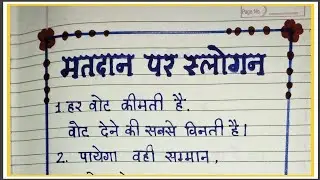 Page No.
मतदान पर स्लोगन
1. हर वोट कीमती है.
वोट देने की सबसे विनती है।
2. पायेगा वही सम्मान,